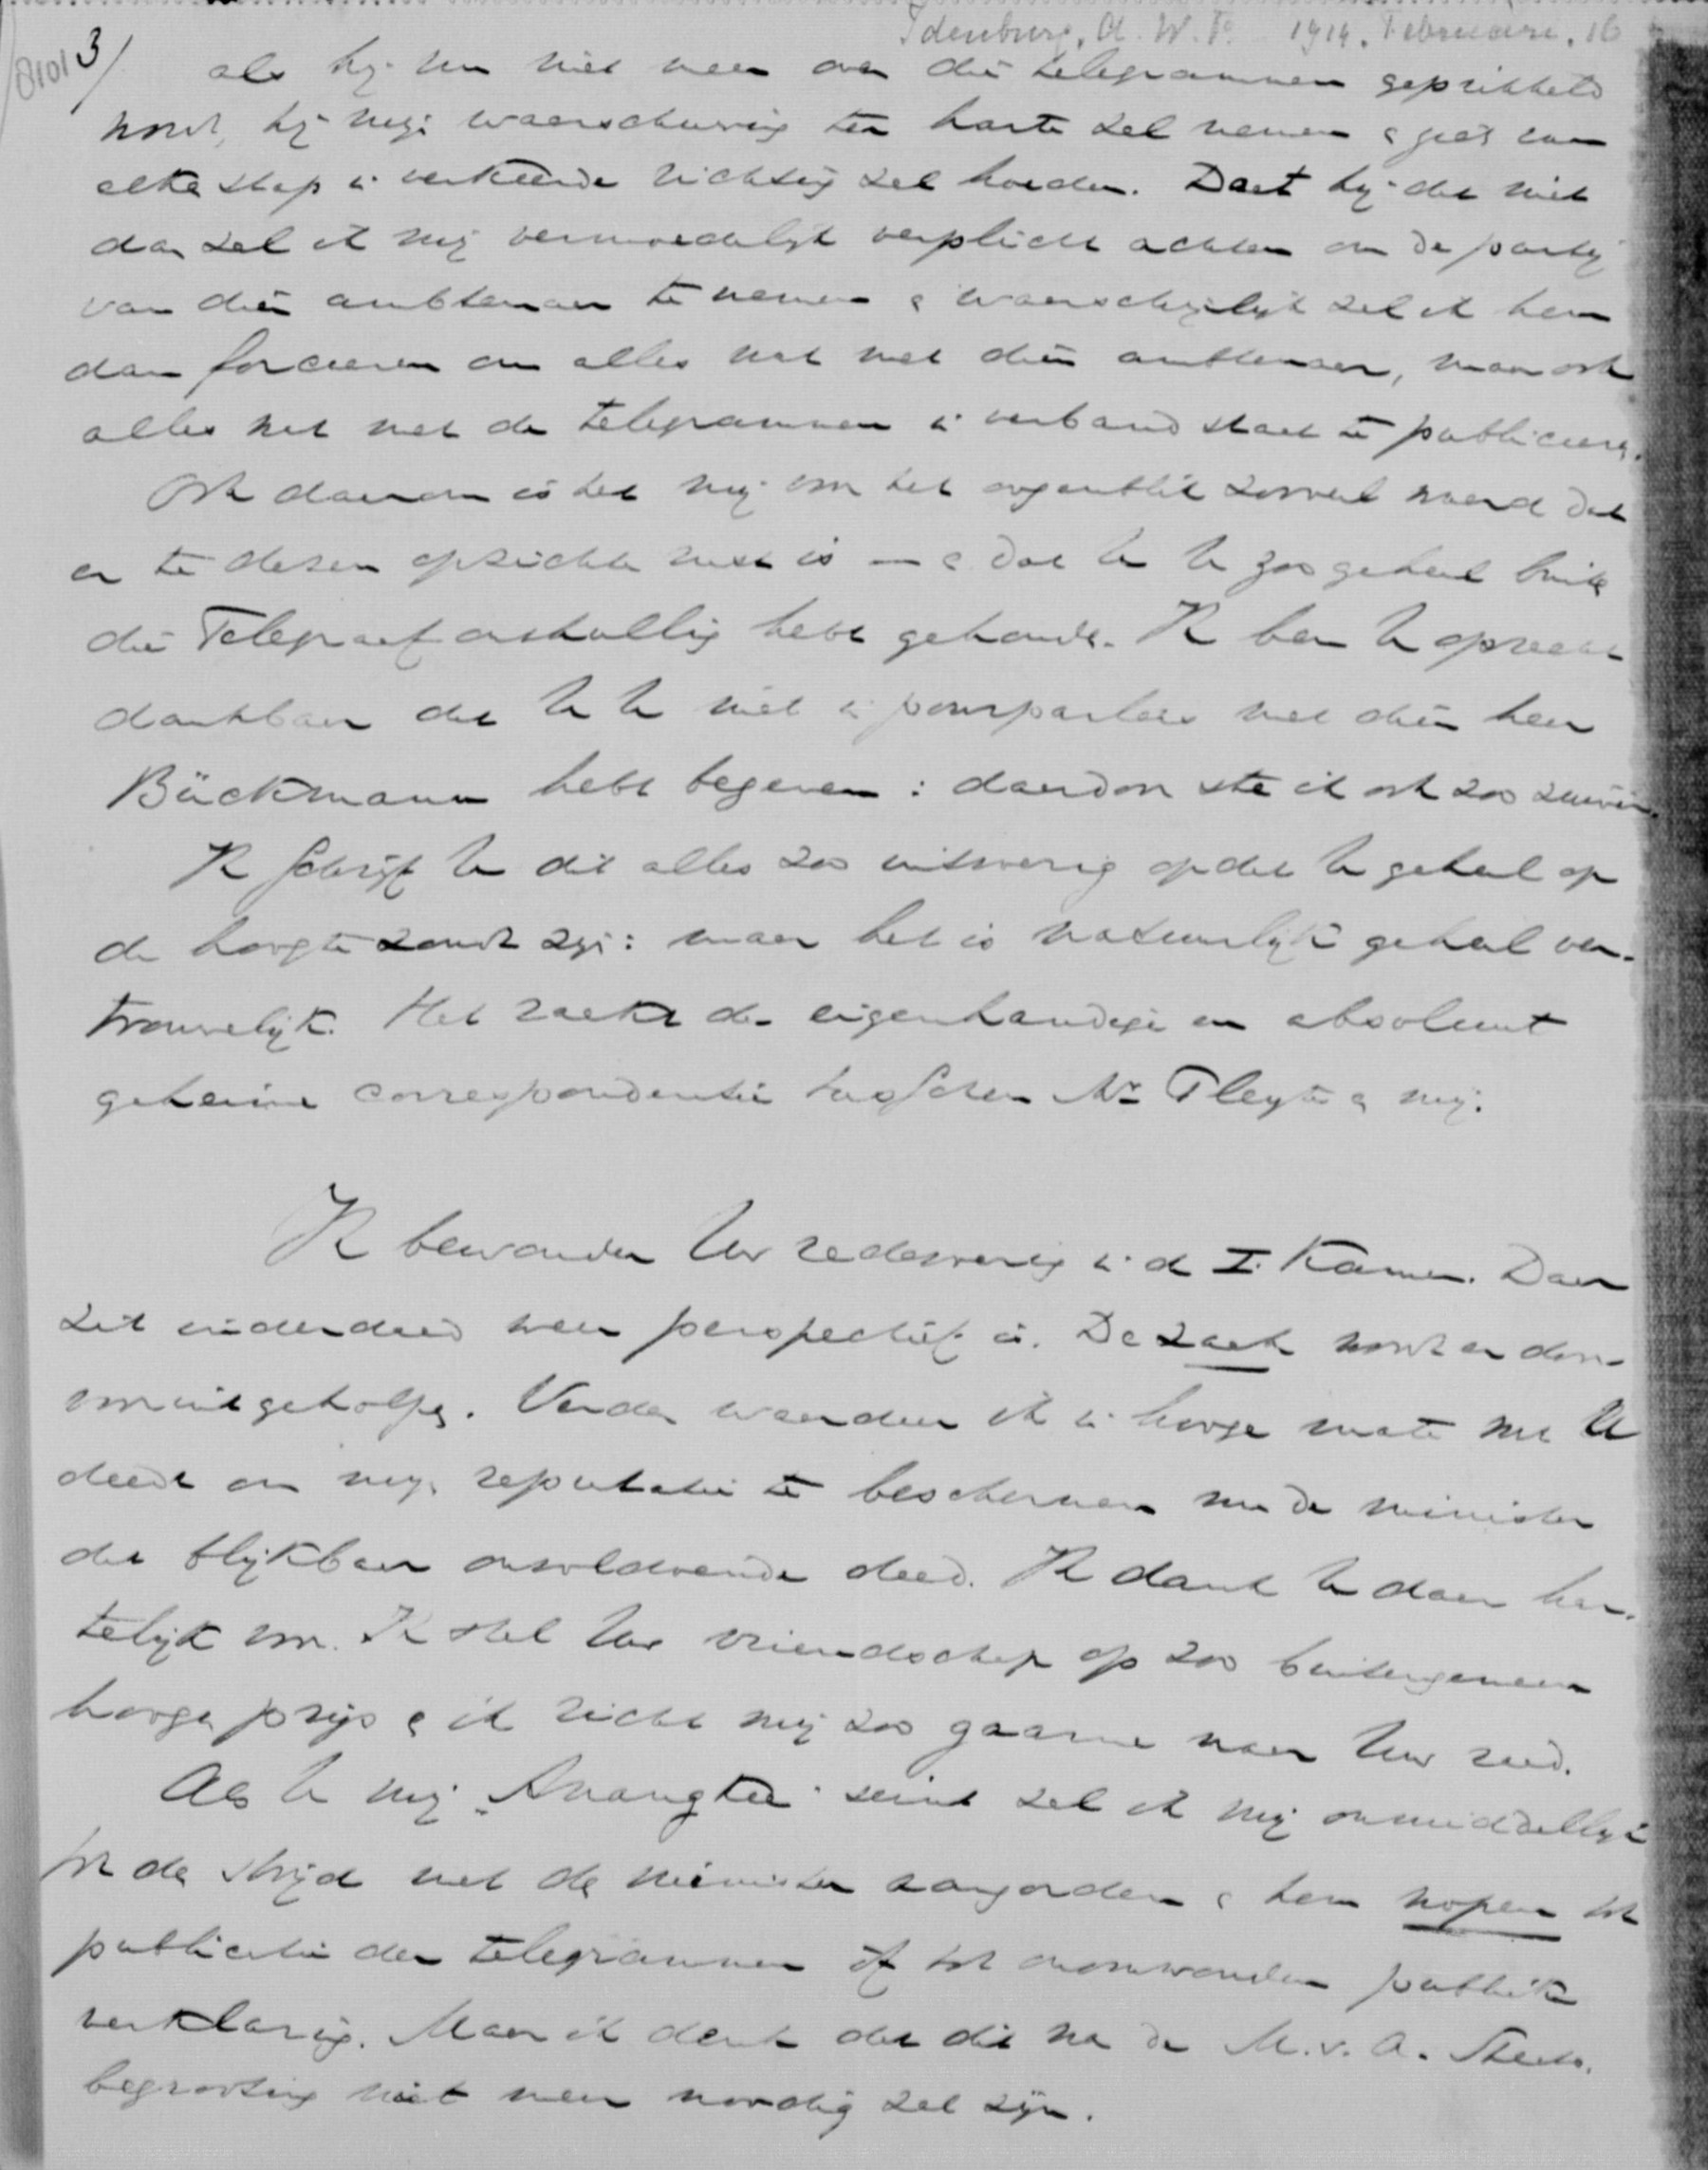 Idenburg, A. W. F. 1914. Februari. 16
8101 3/
als hij nu niet meer over die telegrammen geprikkeld
wordt, hij mijn waarschuwing ter harte zal nemen & zich van
elke stap in verkeerde richting zal hoeden. Doet hij dat niet
dan zal ik mij vermoedelijk verplicht achten om de partij
van dien ambtenaar te nemen & waarschijnlijk zal ik hem
dan forceeren om alles wat met dien ambtenaar, maar ook
alles wat met de telegrammen in verband staat te publiceeren.
Ook daarom is het mij om het oogenblik zooveel waard dat
er te dezen opzichte rust is — & dat U U zoo geheel buiten
die Telegraaf onthulling hebt gehouden. Ik ben U oprecht
dankbaar dat U U niet in pourparlers met dien heer
Bückmann hebt begeven : daardoor sta ik ook zoo zuiver.
Ik schrijf U dit alles zoo uitvoerig opdat U geheel op
de hoogte zoudt zijn : maar het is natuurlijk geheel ver-
trouwelijk. Het raakt de eigenhandige en absoluut
geheime correspondentie tusschen Mr Pleyte & mij.
Ik bewonder Uw redevoering in de I. Kamer. Daar
zit inderdaad weer perspectief in. De zaak wordt er door
vooruitgeholpen. Verder waardeer ik in hooge mate wat U
deedt om mijn reputatie te beschermen nu de minister
dat blijkbaar onvoldoende deed. Ik dank U daar har-
telijk voor. Ik stel Uw vriendschap op zoo buitengemeen
hoogen prijs & ik richt mij zoo gaarne naar Uw raad.
Als U mij "Anangkè" seint zal ik mij onmiddellijk
tot den strijd met den minister aangorden & hem nopen tot
publicatie der telegrammen òf tot onomwonden publieke
verklaring. Maar ik denk dat dit na de M.v.A. Staats-
begrooting niet meer noodig zal zijn.